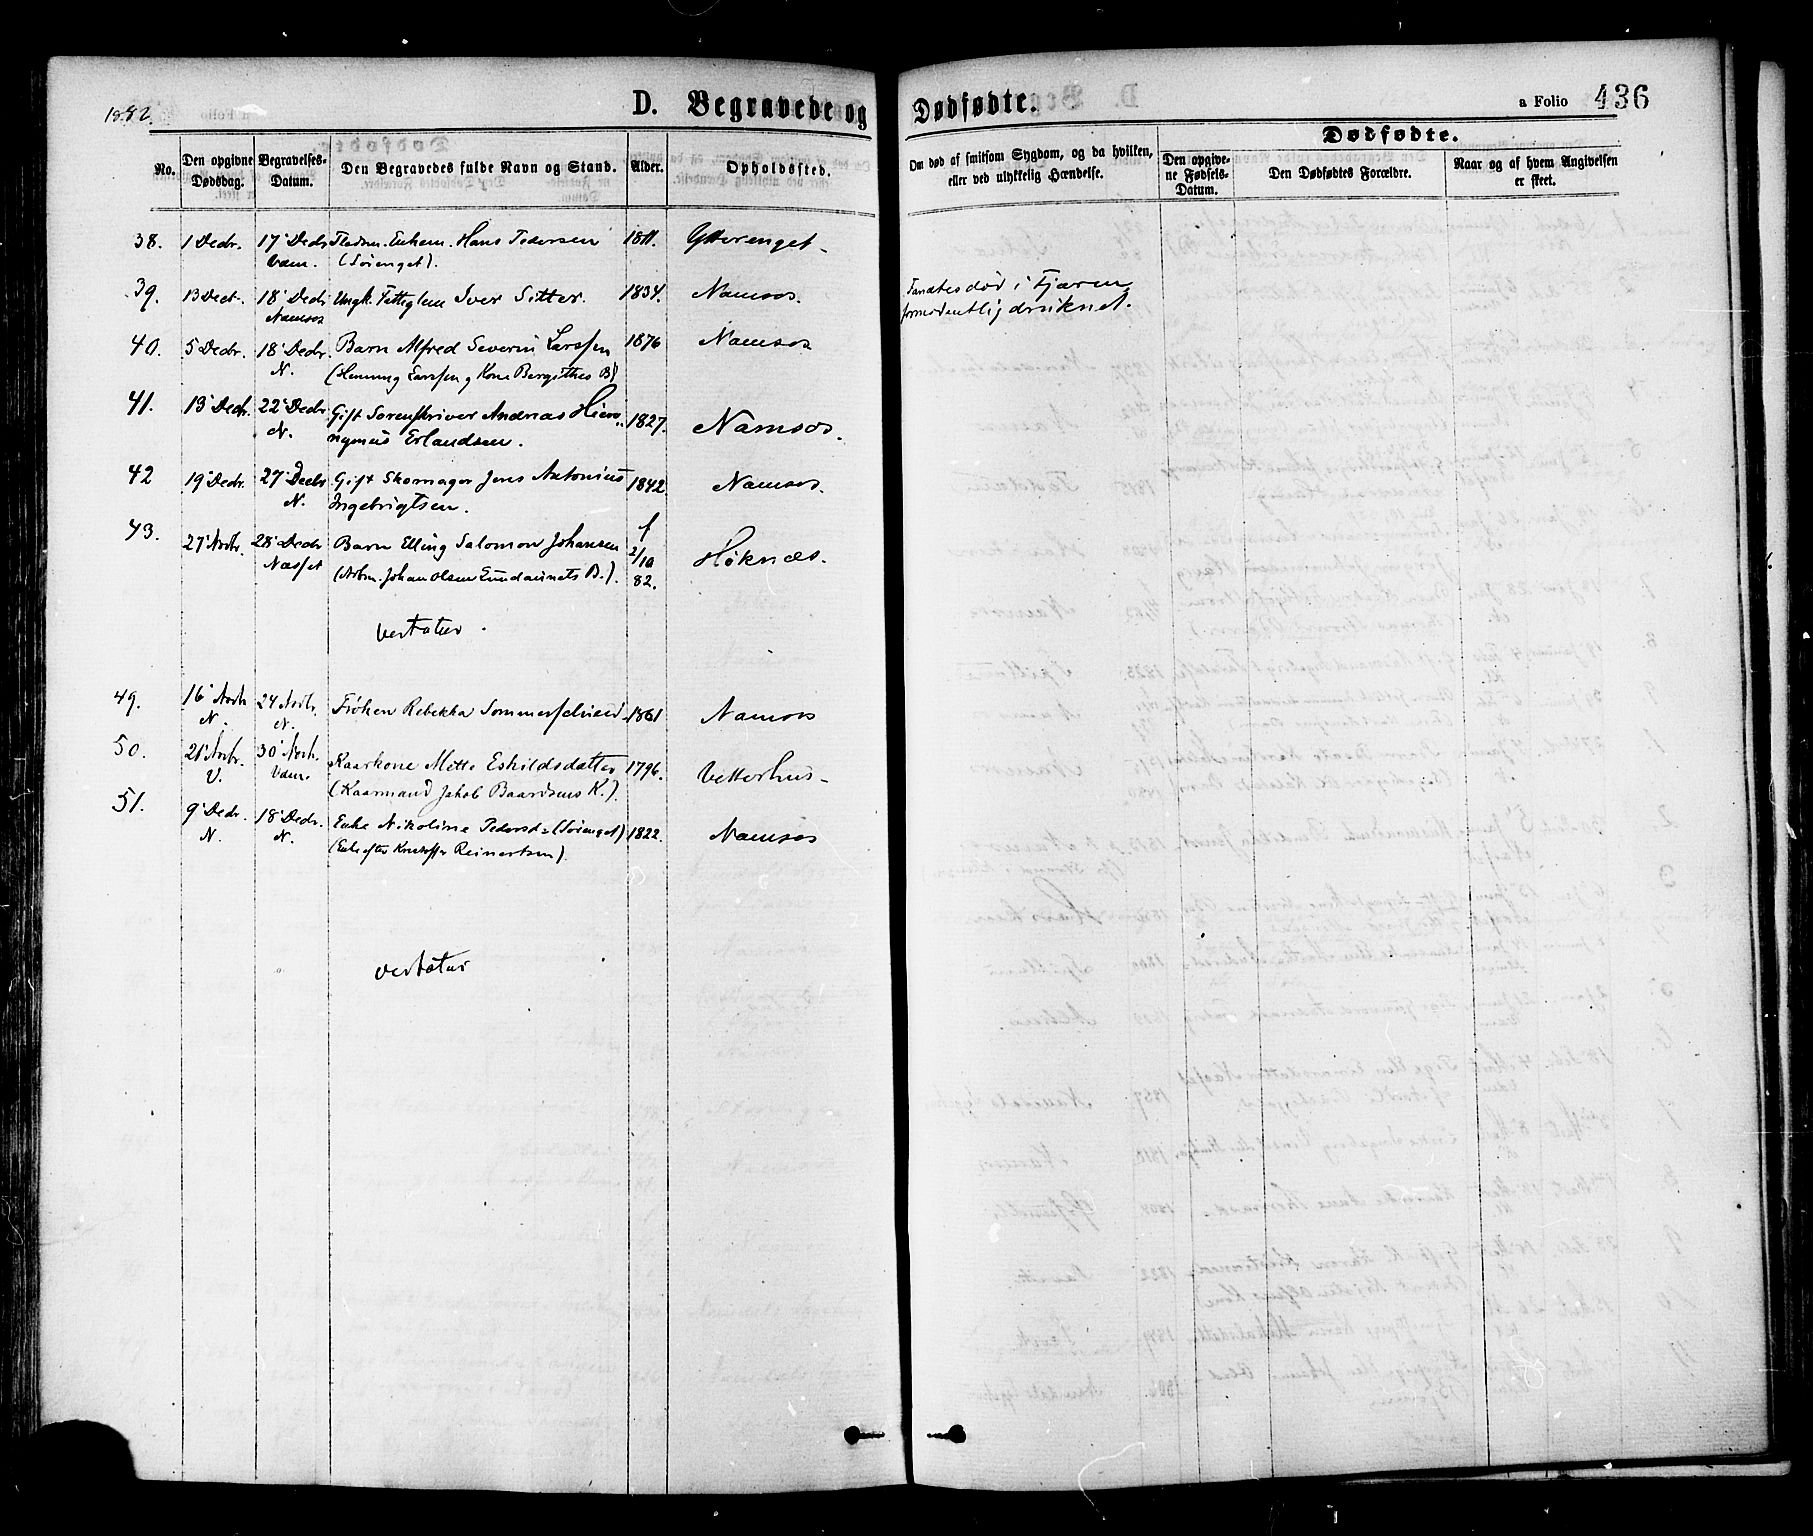 1882.
D. Begravede og Dødfødte.
a Folio 436
No.
Den opgivne Dødsdag.
Begravelses-Datum.
Den Begravedes fulde Navn og Stand.
Alder.
Opholdssted.
Om død af smitsom Sygdom, og da hvilken, eller ved ulykkelig Hændelse.
Dødfødte.
Den opgivne Fødsels-Datum.
Den Dødfødtes Forældre.
Naar og af hvem Angivelsen er skeet.
38. 1 Decbr. 17 Decbr Enkem. Hans Pedersen 1811. Ytterenget.
Vem. (Sørenget).
39. 13 Decbr. 18 Decbr Ungk. Fattiglem Iver Sitter. 1834. Namsos. Fandtes død i Fjæren,
Namsos formodentlig druknet.
40. 5 Decbr. 18 Decbr. Barn Alfred Severin Larssen 1876 Namsos
N. (Henning Larssen og Kone Bergithes B)
41. 13 Decbr. 22 Decbr Gift Sorenskriver Andreas Hiero- 1827. Namsos.
N. nymus Erlandsen.
42 19 Decbr. 27 Decbr Gift Skomager Jens Antonius 1842 Namsos.
N. Ingebrigtsen.
43. 27 Novbr. 28 Decbr Barn Elling Salomon Johansen f 2/10 82. Høknæs.
Næsset (Arbm. Johan Olsen Lundaunets B.).
vertatur.
49. 16 Novbr. 24 Novbr. Frøken Rebekka Sommerschield 1861 Namsos
N. N.
50. 21 Novbr. 30 Novbr. Kaarkone Mette Eskildsdatter 1796. Vetterhus
V. Vem. (Kaarmand Jakob Baardsens K.).
51. 9 Decbr. 18 Decbr. Enke Nikoline Pedersd. (Sørenget) 1822. Namsos
N. N. (Enke efter Kristoffer Reinertsen).
vertatur